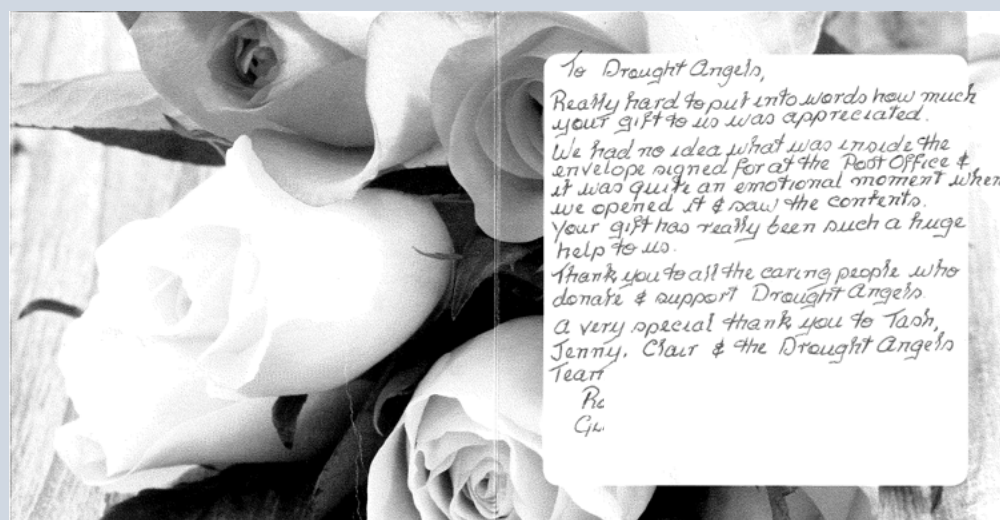 To Drought Angels,
Really hard to put into words how much
your gift to us was appreciated.
We had no idea what was inside the
envelope signed for at the Post Office &
it was quite an emotional moment when
we opened it & saw the contents.
Your gift has really been such a huge
help to us.
Thank you to all the caring people who
donate & support Drought Angels.
A very special thank you to Tash,
Jenny, Clair & the Drought Angels
Team